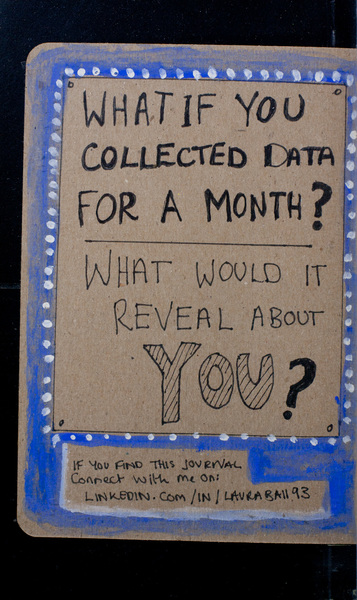 WHAT IF YOU
COLLECTED DATA
FOR A MONTH?
WHAT WOULD IT
REVEAL ABOUT
YOU?
IF YOU FIND THIS JOURNAL
Connect with me on:
LINKEDIN.COM/IN/LAURABALL93